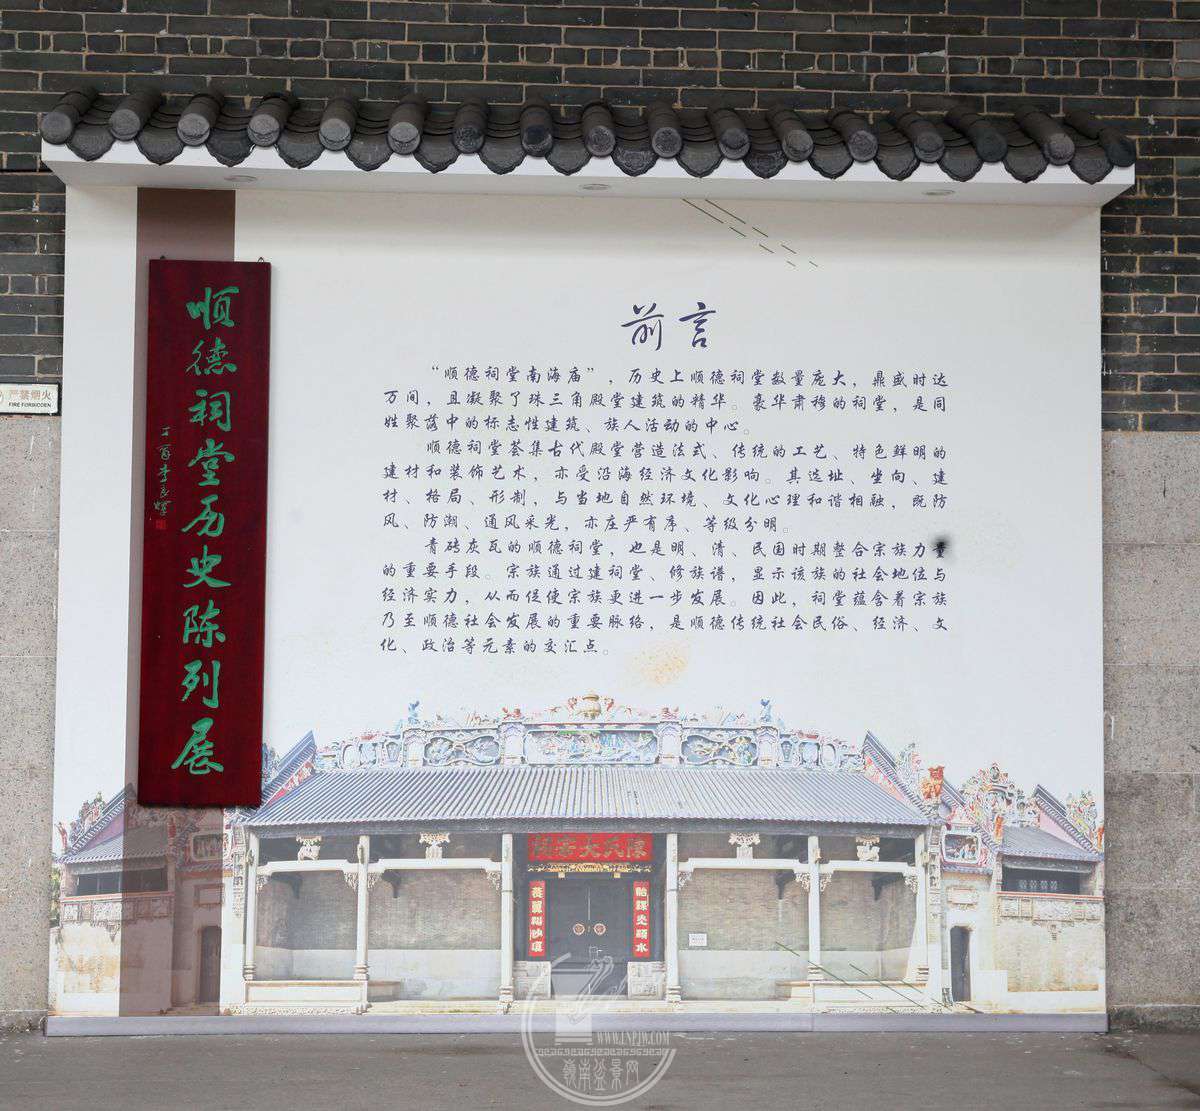 顺德祠堂历史陈列展
丁酉李良晖
严禁烟火
FIRE FORBIDDEN
前言
“顺德祠堂南海庙”，历史上顺德祠堂数量庞大，鼎盛时达
万间，且凝聚了珠三角殿堂建筑的精华。豪华肃穆的祠堂，是同
姓聚落中的标志性建筑、族人活动的中心。
顺德祠堂荟集古代殿堂营造法式、传统的工艺、特色鲜明的
建材和装饰艺术，亦受沿海经济文化影响。其选址、坐向、建
材、格局、形制，与当地自然环境、文化心理和谐相融，既防
风、防潮、通风采光，亦庄严有序、等级分明。
青砖灰瓦的顺德祠堂，也是明、清、民国时期整合宗族力量
的重要手段。宗族通过建祠堂、修族谱，显示该族的社会地位与
经济实力，从而促使宗族更进一步发展。因此，祠堂蕴含着宗族
乃至顺德社会发展的重要脉络，是顺德传统社会民俗、经济、文
化、政治等元素的交汇点。
WWW.LNPJW.COM
嶺南盆景网